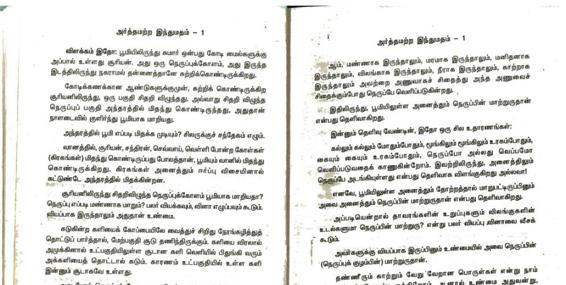 அர்த்தமற்ற இந்துமதம் – 1
விளக்கம் இதோ: பூமியிலிருந்து சுமார் ஒன்பது கோடி மைல்களுக்கு
அப்பால் உள்ளது சூரியன். அது ஒரு நெருப்புக்கோளம், அது இருந்த
இடத்திலிருந்து நகராமல் தன்னைத்தானே சுற்றிக்கொண்டிருக்கிறது.
கோடிக்கணக்கான ஆண்டுகளுக்குமுன், சுற்றிக் கொண்டிருக்கிற
சூரியனிலிருந்து, ஒரு பகுதி சிதறி விழுந்தது, அவ்வாறு சிதறி விழுந்த
நெருப்புப் பகுதி அந்தரத்தில் மிதந்து கொண்டிருந்தது, அதுதான்
நாளடைவில் குளிர்ந்து பூமியாக மாறியது.
அந்தரத்தில் பூமி எப்படி மிதக்க முடியும்? சிலருக்குச் சந்தேகம் எழும்.
வானத்தில், சூரியன், சந்திரன், செவ்வாய், வெள்ளி போன்ற கோள்கள்
(கிரகங்கள்) மிதந்து கொண்டிருப்பது போலத்தான், பூமியும் வானில் மிதந்து
கொண்டிருக்கிறது. கிரகங்கள் அனைத்தும் ஈர்ப்பு விசையினால்
கட்டுண்டே அந்தரத்தில் மிதக்கின்றன.
சூரியனிலிருந்து சிதறிவிழுந்த நெருப்புக்கோளம் பூமியாக மாறியதா?
நெருப்பு எப்படி மண்ணாக மாறும்? பலர் வியக்கவும், வினா எழுப்பவும் கூடும்.
வியப்பாக இருந்தாலும் அதுதான் உண்மை.
சுடுகின்ற களியைக் கோப்பையிலே வைத்துச் சிறிது நேரங்கழித்துத்
தொட்டுப் பார்த்தால், மேற்பகுதி சூடு தணிந்திருக்கும். களியை விரலால்
அழுக்கினால் உட்பகுதியிலிலுள்ள சூடான களி வெளியில் பிதுங்கி வரும்
அக்களியைத் தொட்டால் சுடும். காரணம் உட்பகுதியில் உள்ள களி
இன்னும் சூடாகவே உள்ளது.
அர்த்தமற்ற இந்துமதம் – 1
ஆம், மண்ணாக இருந்தாலும், மரமாக இருந்தாலும், மனிதனாக
இருந்தாலும், விலங்காக இருந்தாலும், நீராக இருந்தாலும், காற்றாக
இருந்தாலும் அவற்றை அணுவாகச் சிதைத்து அந்த அணுவைச்
சிதைக்கும்போது நெருப்பே வெளிப்படுகின்றது.
இதிலிருந்து, பூமியிலுள்ள அனைத்தும் நெருப்பின் மாற்றுருதான்
என்பது தெளிவாகிறது.
இன்னும் தெளிவு வேண்டின், இதோ ஒரு சில உதாரணங்கள்:
கல்லும் கல்லும் மோதும்போதும், மூங்கிலும் மூங்கிலும் உரசும்போதும்,
கையும் கையும் உரசும்போதும், நெருப்போ அல்லது வெப்பமோ
வெளிப்படுவதைக் காணுகின்றோம். இவற்றிலிருந்து, அனைத்திலும்
நெருப்பே அடங்கியுள்ளது என்பது தெளிவாக விளங்குகிறது அல்லவா!
எனவே, பூமியிலுள்ள அனைத்தும் தோற்றத்தால் மாறுபட்டிருப்பினும்
அவை அனைத்தும் நெருப்பின் மாற்றுருதான் என்பது தெளிவாகிறது.
அப்படியென்றால் தாவரங்களின் உறுப்புகளும் விலங்குகளின்
உடல்களுமா நெருப்பின் மாற்றுரு? என்று பலர் வியப்பு வினாவை வீசக்
கூடும்.
அவர்களுக்கு வியப்பாக இருப்பினும் உண்மையில் அவை நெருப்பின்
(நெருப்புக் குழம்பின்) மாற்றுருதான்.
தண்ணீரும் காற்றும் வேறு வேறான பொருள்கள் என்று நாம்